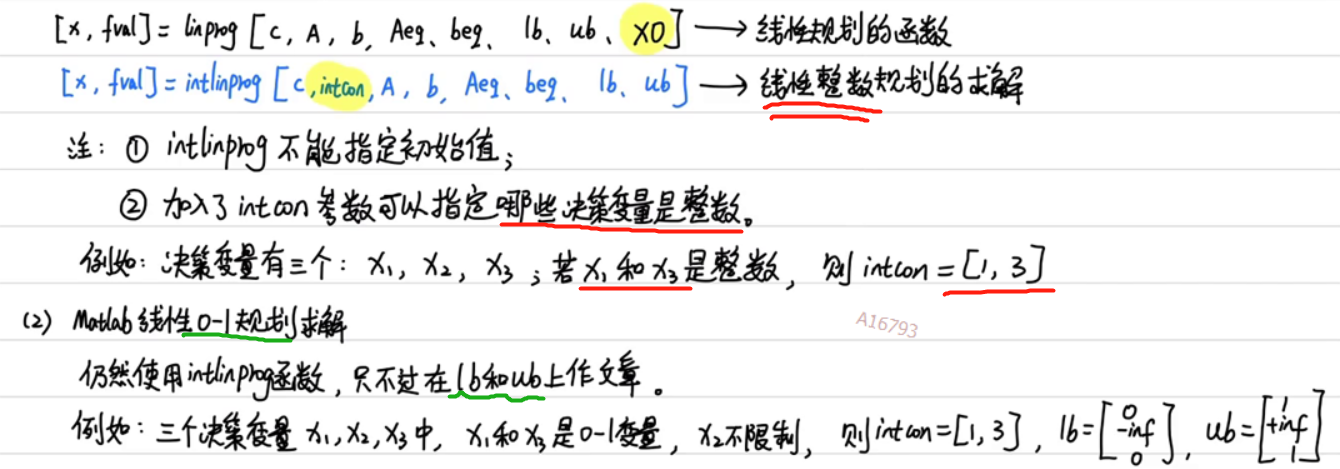 [x, fval] = linprog [c, A, b, Aeq、beq、 lb、ub、X0] → 线性规划的函数
[x, fval] = intlinprog [c, intcon, A, b, Aeq、beq、 lb、ub] → 线性整数规划的求解
注: ① intlinprog 不能指定初始值;
② 加入了 intcon 参数可以指定哪些决策变量是整数。
例如: 决策变量有三个: x₁, x₂, x₃ ; 若 x₁ 和 x₃ 是整数, 则 intcon = [1, 3]
(2) Matlab 线性0-1规划求解
A16793
仍然使用intlinprog函数, 只不过在lb和ub上作文章。
例如: 三个决策变量 x₁, x₂, x₃ 中, x₁和x₃是0-1变量, x₂不限制, 则 intcon = [1, 3], lb = [0 -inf 0], ub = [1 +inf 1]